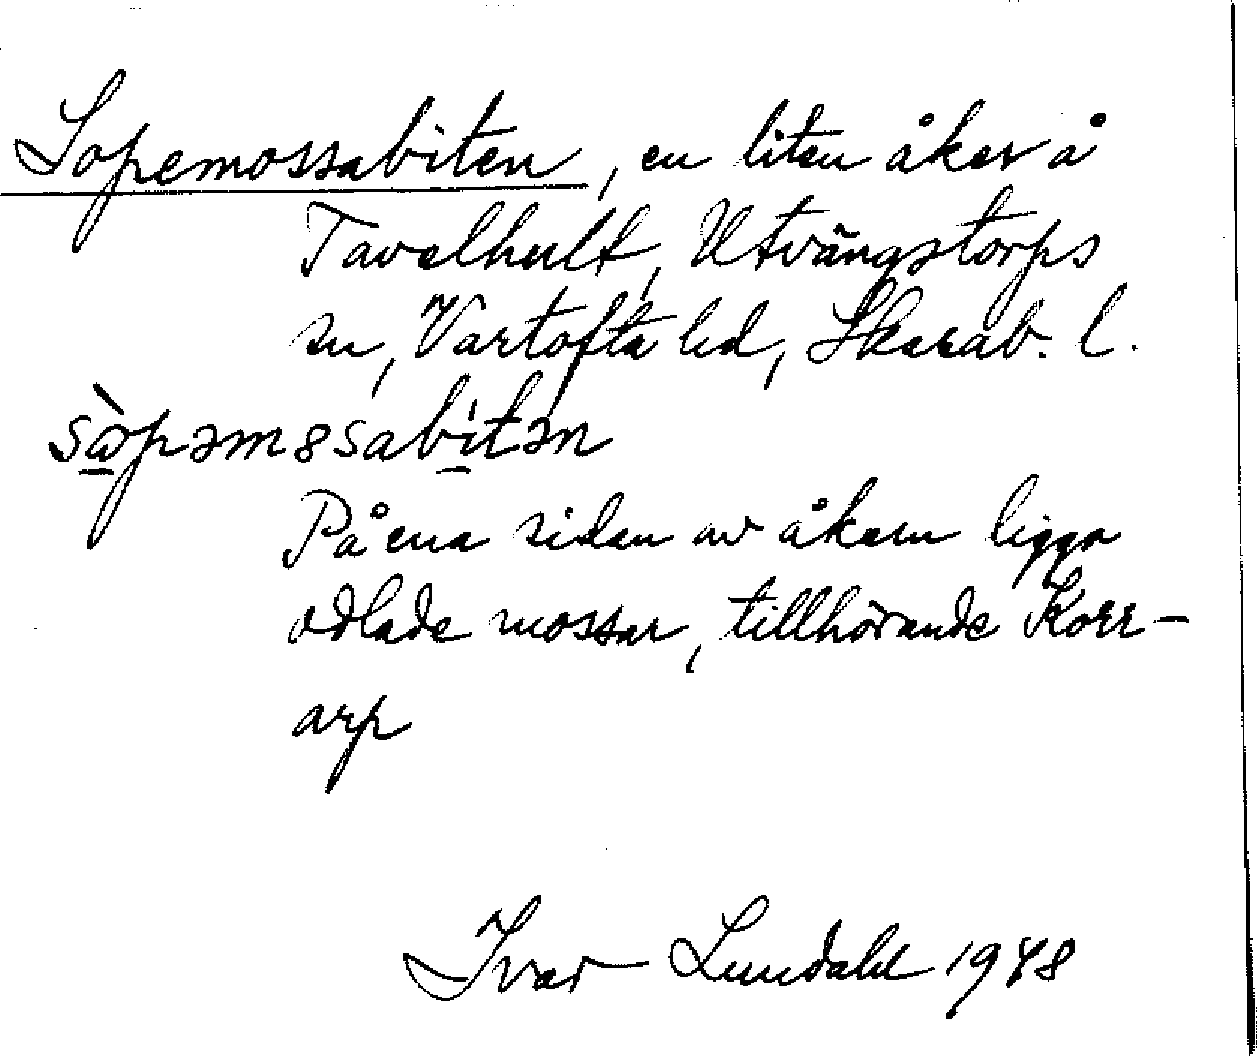 Sopemossabiten, en liten åker å
Tavelhult, Utvängstorps
sn, Vartofta hd, Skarab. l.
sòpəm8sabitən
På ena sidan av åkern ligga
odlade mossar, tillhörande Korr-
arp
Ivar Lundahl 1948